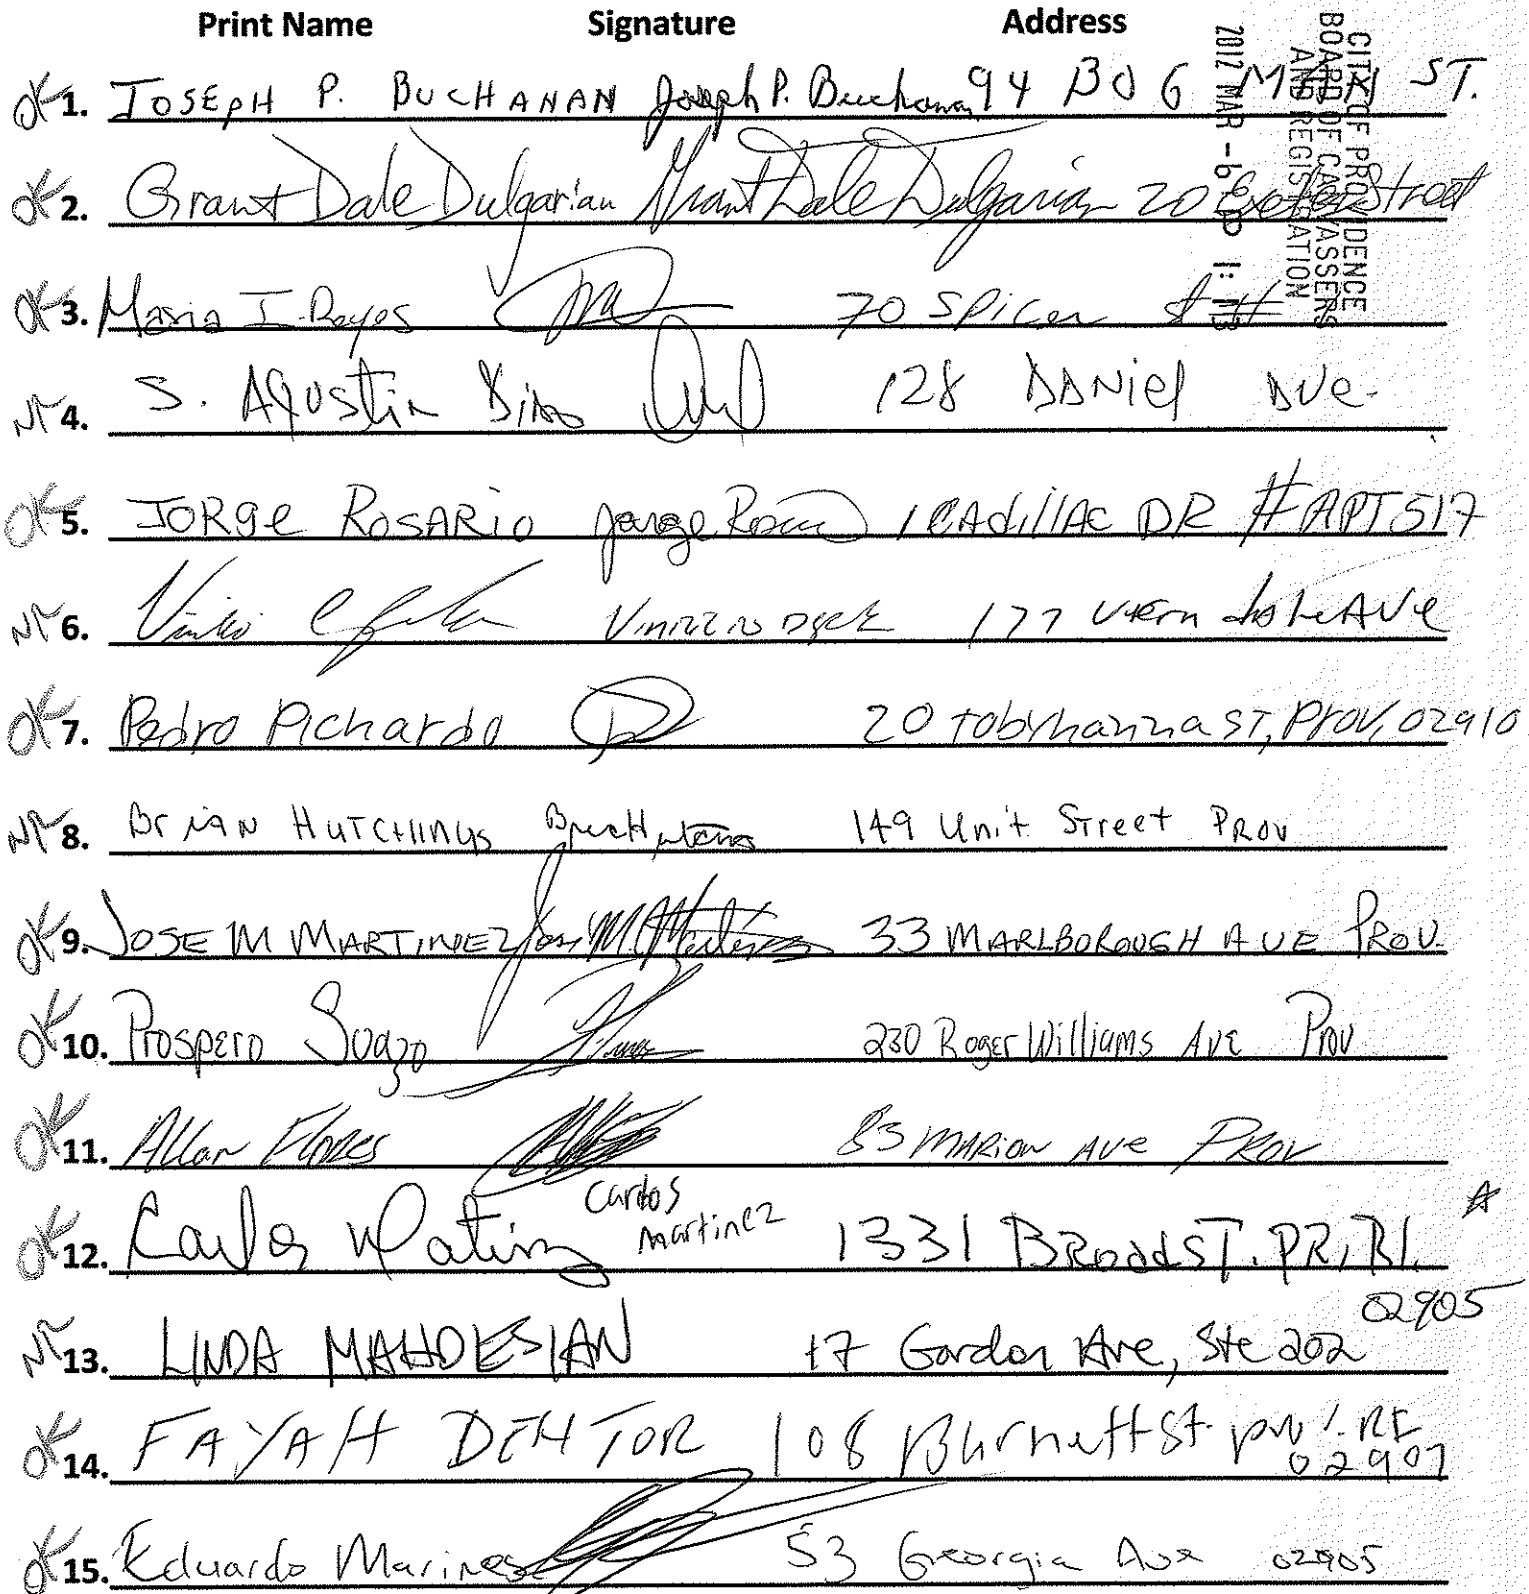 Print Name Signature Address
CITY OF PROVIDENCE
BOARD OF CANVASSERS
AND REGISTRATION
2012 MAR -6
OK 1. JOSEPH P. BUCHANAN Joseph P. Buchanan 94 BOGMAN ST.
OK 2. Grant Dale Dulgarian Grant Dale Dulgarian 20 Exeter Street
OK 3. Maria I. Reyes 70 Spicer St
NR 4. S. Agustin 128 DANiel AVe.
OK 5. JORge ROSARIO Jorge 1 CAdillAC DR #APT517
NR 6. 177 AVe
OK 7. Pedro Pichardo 20 tobyhanna ST, Prov, 02910
NR 8. BriAN HUTCHINgS 149 Unit Street PROV
OK 9. JOSE M MARTINEZ Jose M Martinez 33 MARLBOROUGH AVE PROV.
OK 10. Prospero Soazo 230 Roger Williams AVE Prov
OK 11. Allan Flores 83 MARION AVe PROV
OK 12. Carlos Carlos
Martinez 1331 BRoadST. PR, RI.
02905
NR 13. LINDA MAHDESIAN 17 Gordon Ave, Ste 202
OK 14. FAYAH DEHTOR 108 Burnett St. prov. RI
02907
OK 15. Eduardo Marines 53 Georgia Ave 02905